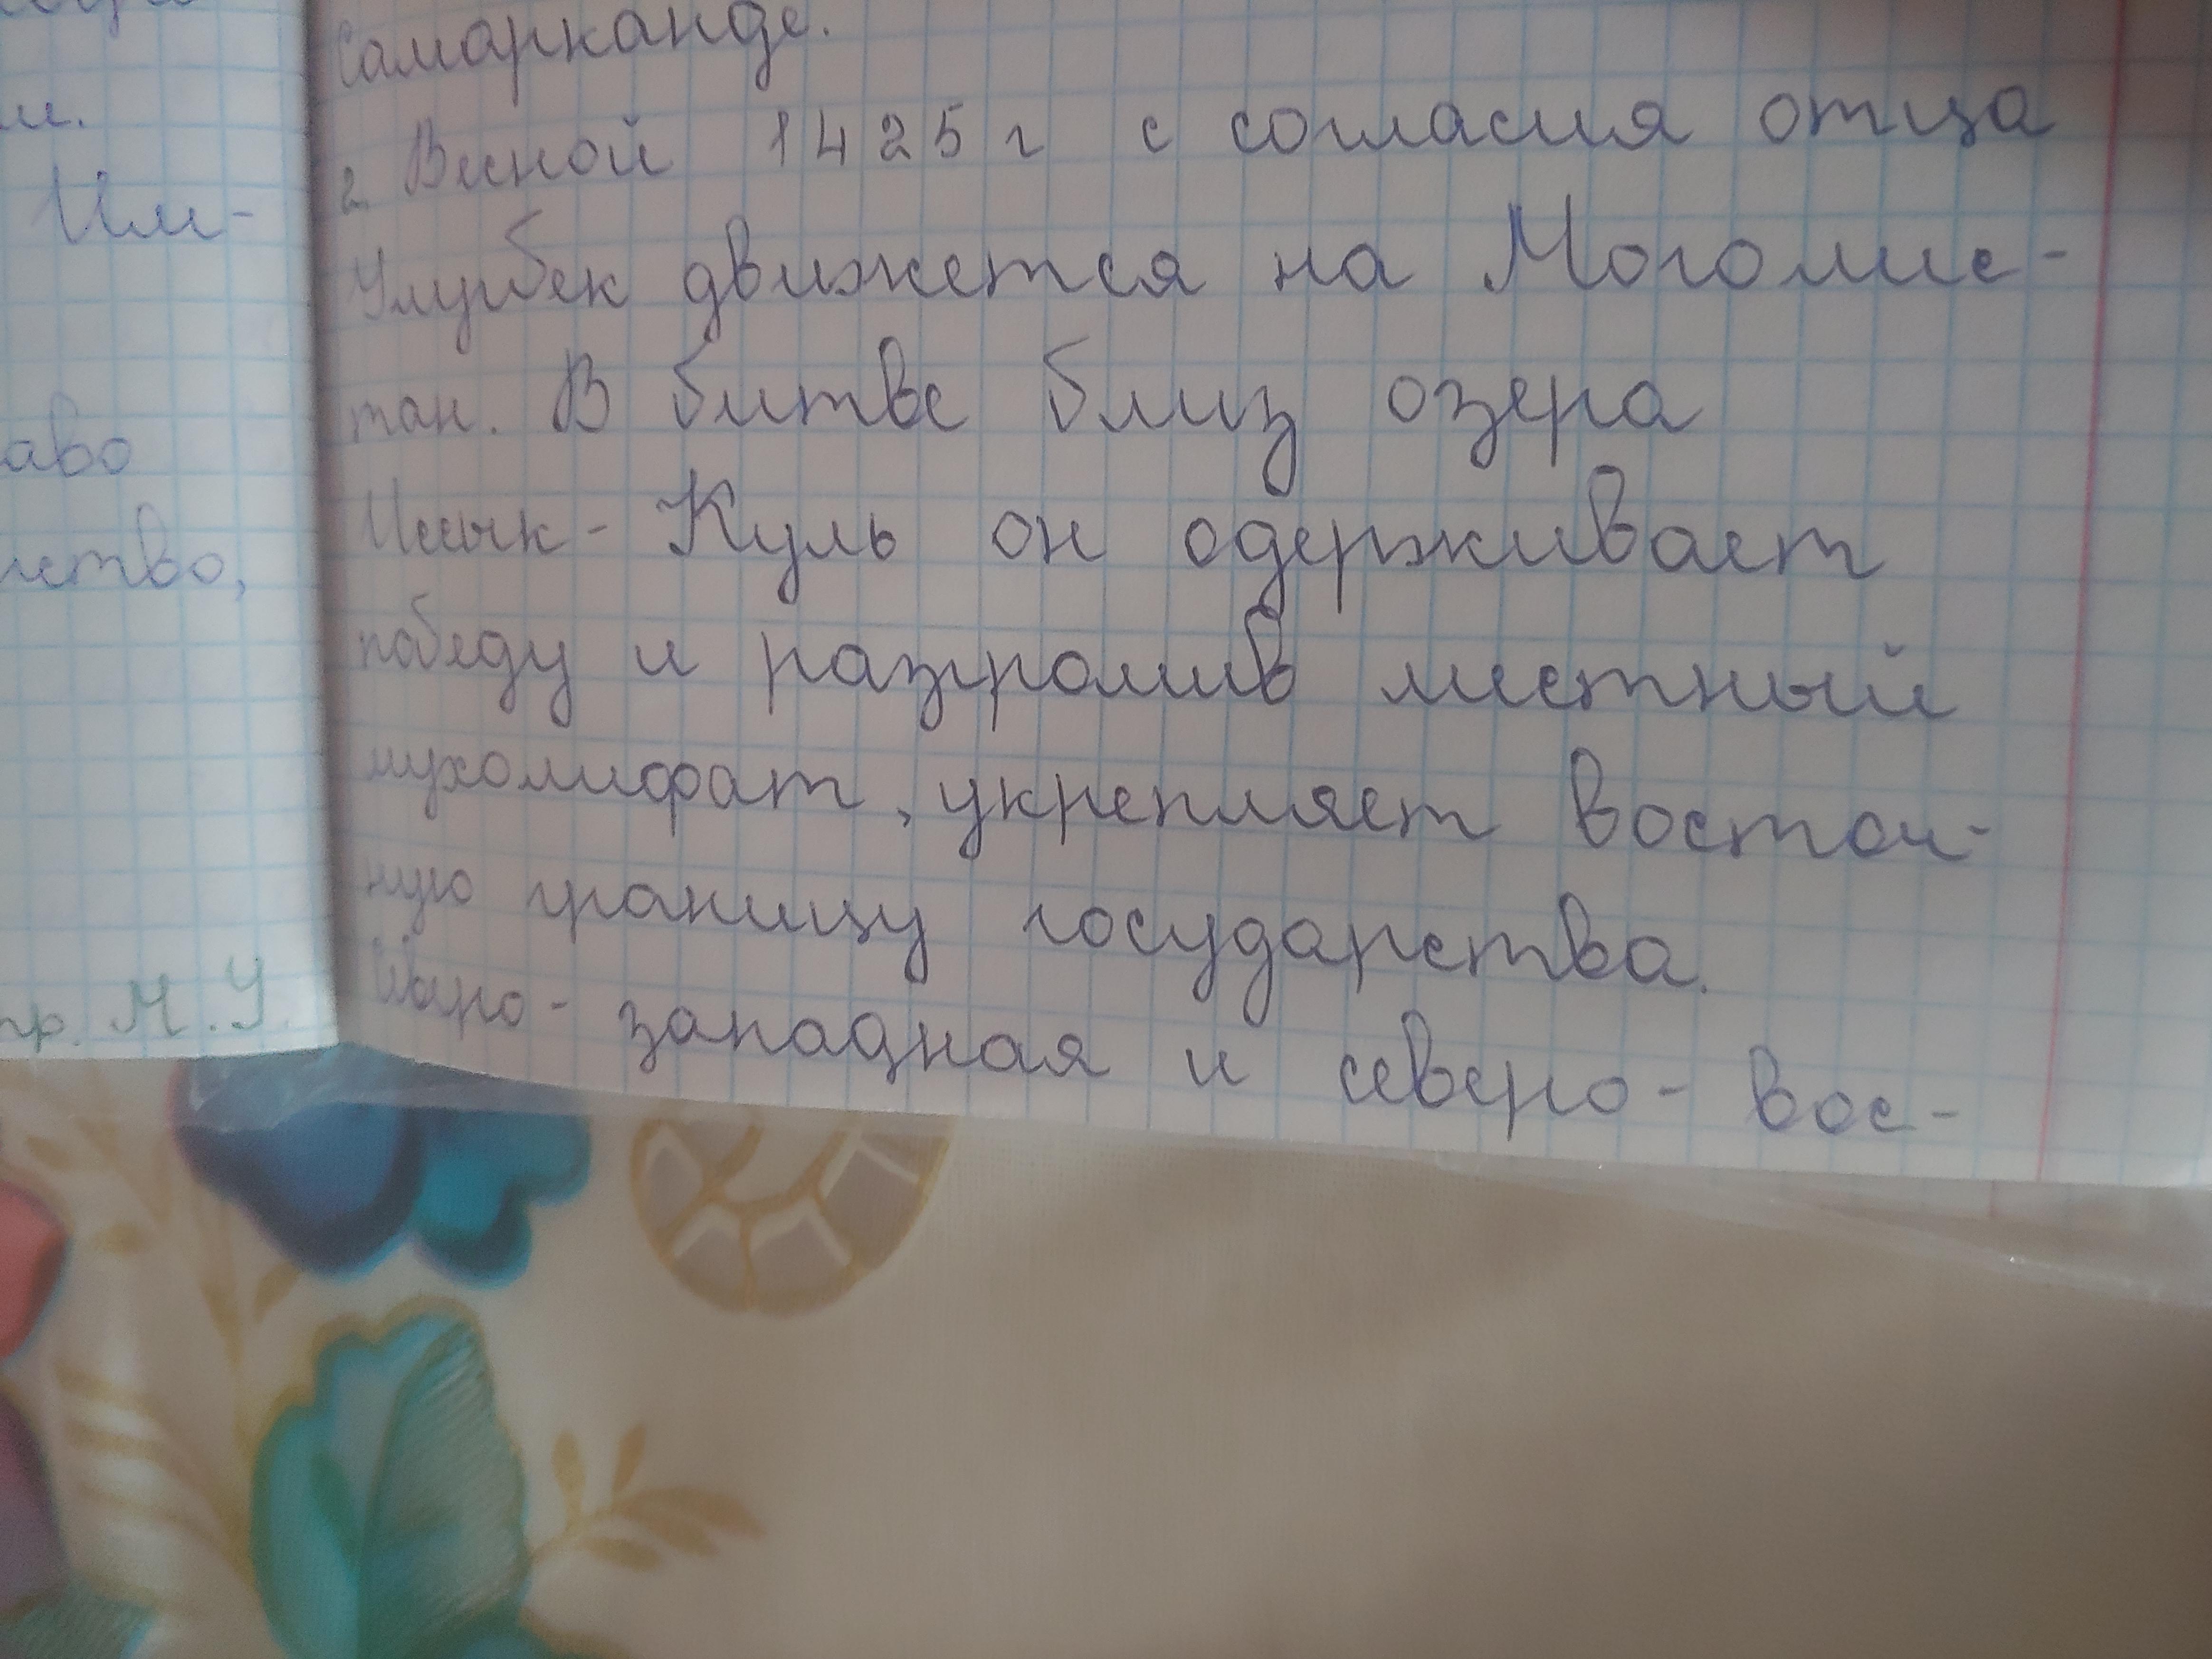 м.
Им-
аво
нство,
пр. М.У.
Самарканде.
2. Весной 1425 г с согласия отца
Улугбек движется на Моголис-
тан. В битве близ озера
Иссык-Куль он одерживает
победу и разгромив местный
мухолифат, укрепляет восточ-
ную границу государства.
Северо-западная и северо-вос-